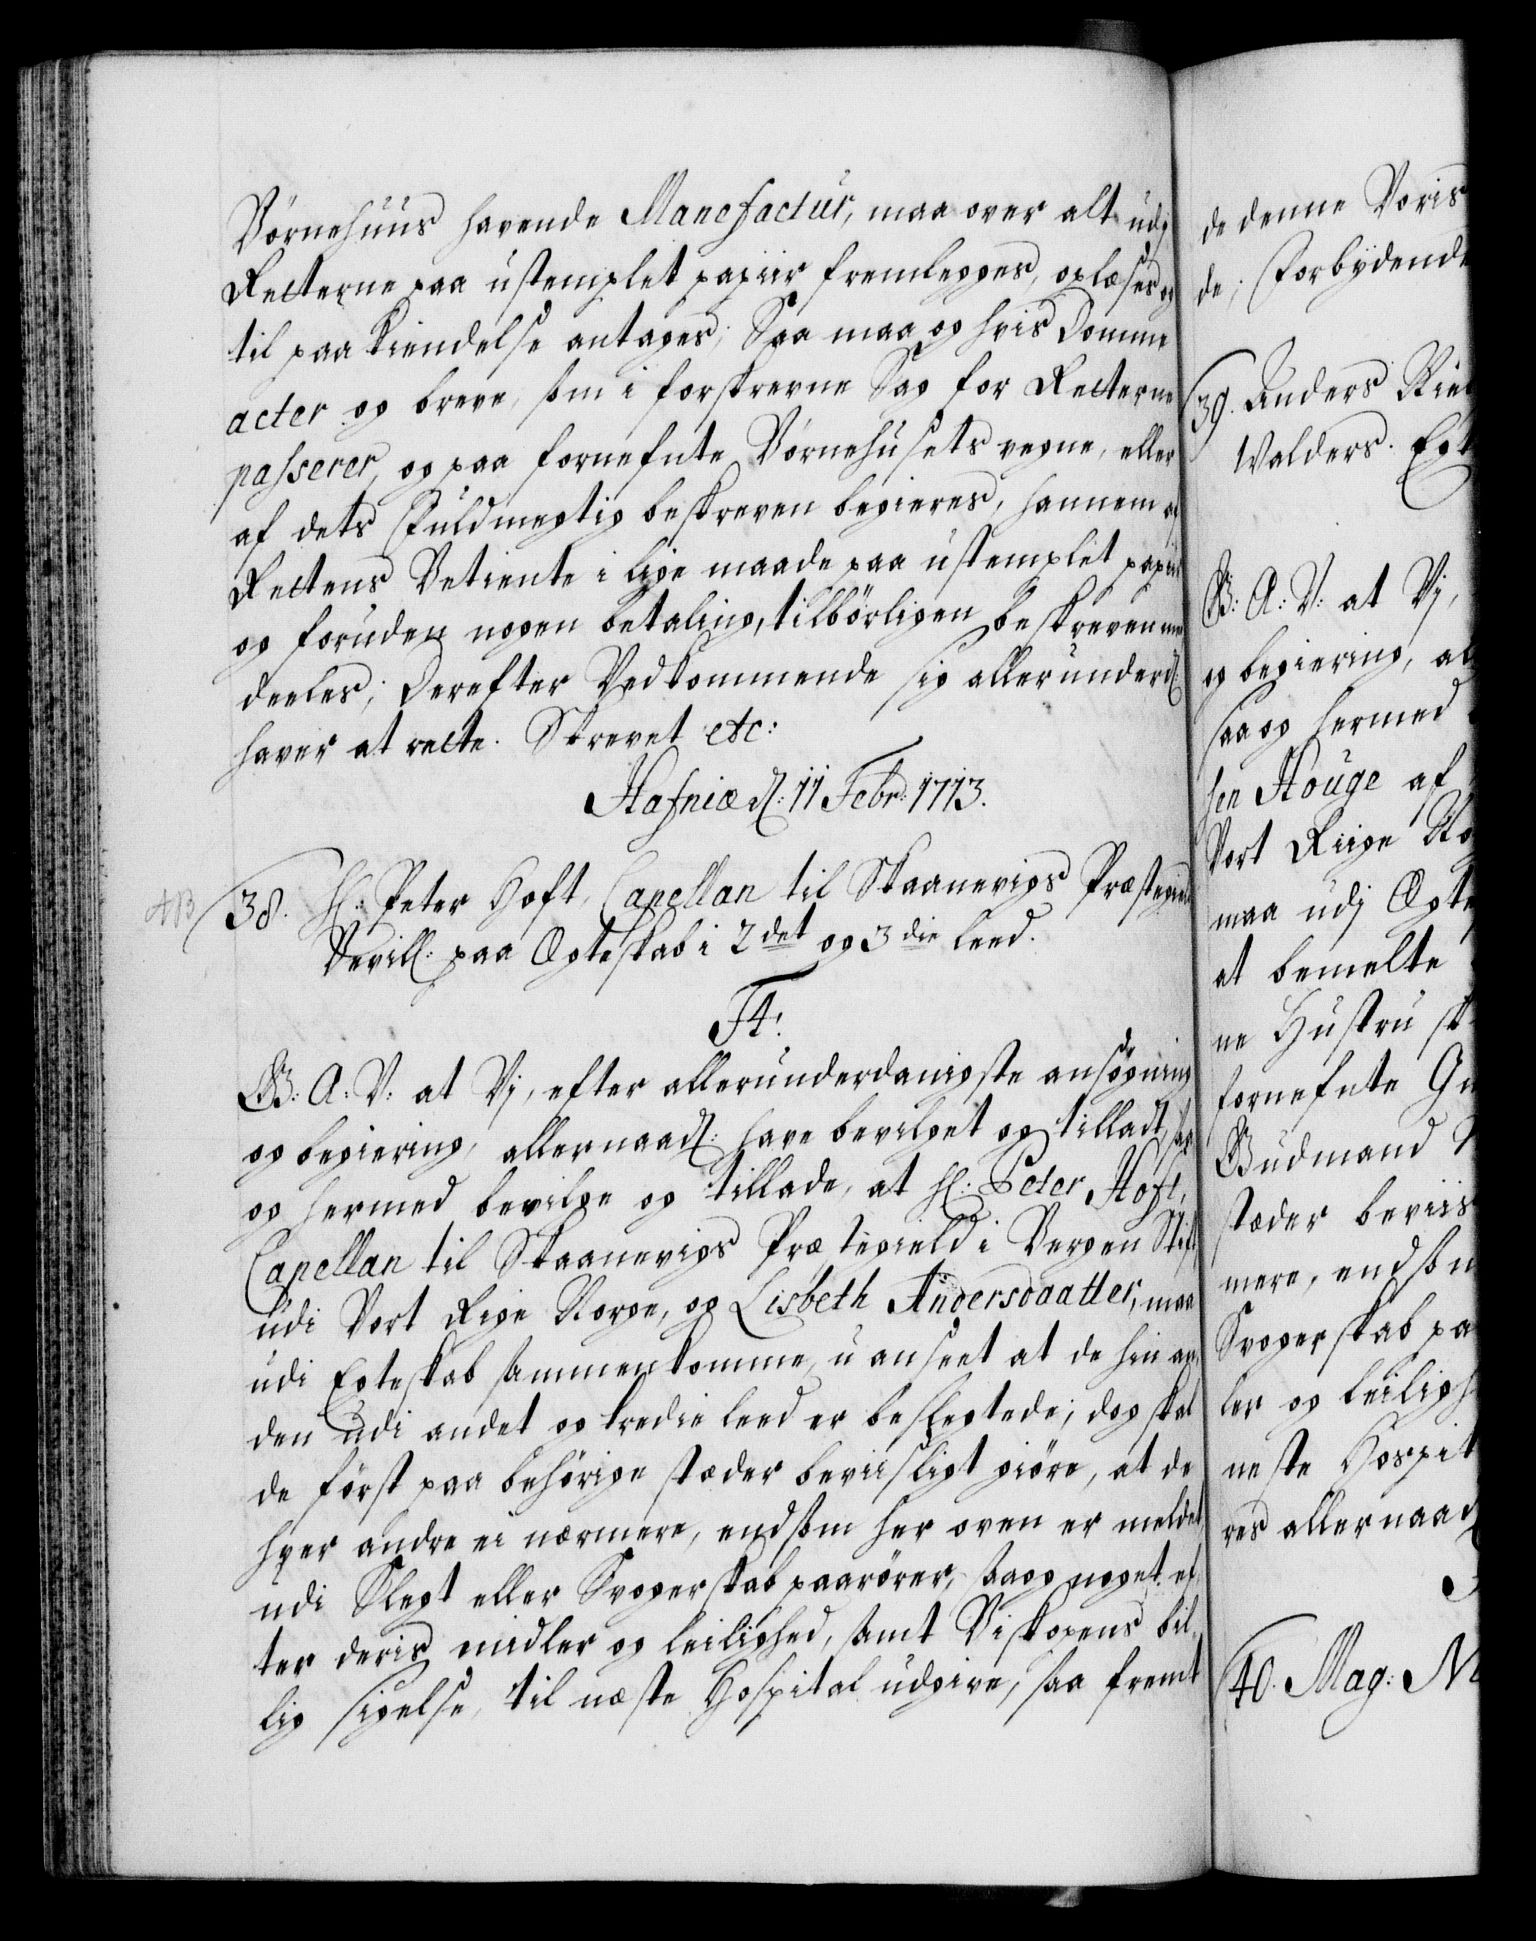 Børnehuus havende Manefactur, maa over alt udj
Retterne paa ustemplet papiir fremlegges, oplæses og
til paa kiendelse antages; Saa maa og hvis Domme
acter og breve, som i forskrevne Sag for Retterne
passerer, og paa fornefnte Børnehusets vegne, eller
af dets Fuldmegtig beskreven begieres, hannem af
Rettens Betiente i lige maade paa ustemplet papiir
og foruden nogen betaling, tilbörligen beskreven med
deeles; Derefter Vedkommende sig allerunderd:
haver at rette. Skrevet etc:
Hafniæ d: 11 Febr: 1713.
38. Hr: Peter Hoft, Capellan til Skaanevigs Præstegield
Bevill: paa Ægteskab i 2det og 3die leed.
F4!
G: A: V: at Vj, efter allerunderdanigste ansøgning
og begiering, allernaad: have bevilget og tilladt, saa
og hermed bevilge og tillade, at Hr: Peter Hoft,
Capellan til Skaanevigs Præstegield i Bergen Stift
udi Vort Rige Norge, og Lisbeth Andersdaatter, maa
udi Egteskab sammenkomme, u anseet at de hin an,
den udi andet og tredie leed er beslegtede; dog skal
de först paa behörige stæder beviisligt giöre, at de
hver andre ei nærmere, end som her oven er meldet,
udi Slegt eller Svogerskab paarörer, saa og noget ef,
ter deris midler og leilighed, samt Biskopens bil,
lig sigelse, til næste Hospital udgive, saa fremt
de denne Voris
de; Forbydende
39. Anders
Walders. Egt
G: A: V: at Vj,
og begiering, al
saa og hermed
sen Houge af
Vort Riige No
maa udj Ægte
at bemelte
ne Hustru sk
fornefnte Gu
Gudmand
stæder beviis
mere, end som
Svogerskab pa
ler og leiligh
neste Hospit
res allernaad
40. Mag: M